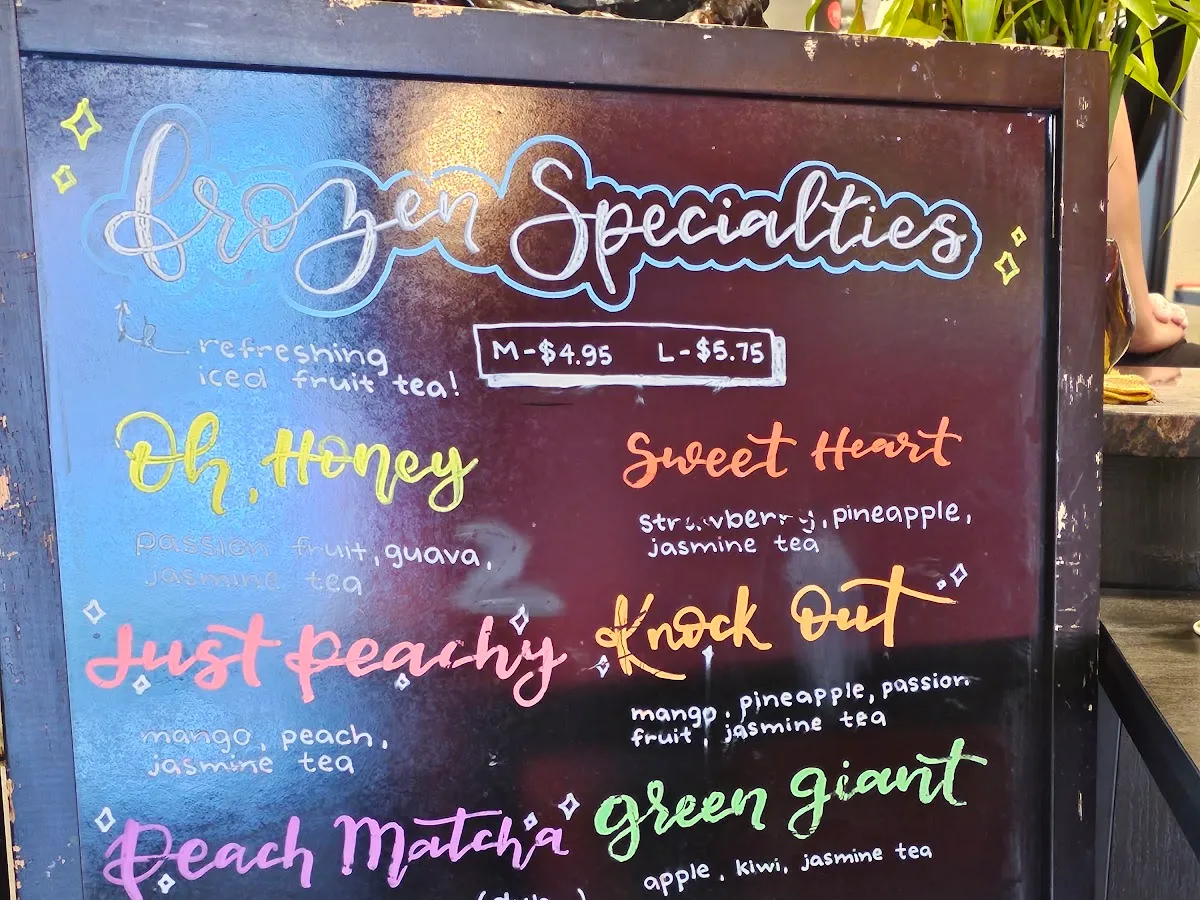 frozen Specialties
refreshing
iced fruit tea!
M-$4.95 L-$5.75
Oh, Honey
passion fruit, guava,
jasmine tea
Sweet Heart
strawberry, pineapple,
jasmine tea
Just Peachy
mango, peach,
jasmine tea
Knock Out
mango, pineapple, passion
fruit, jasmine tea
Peach Matcha
green giant
apple, kiwi, jasmine tea